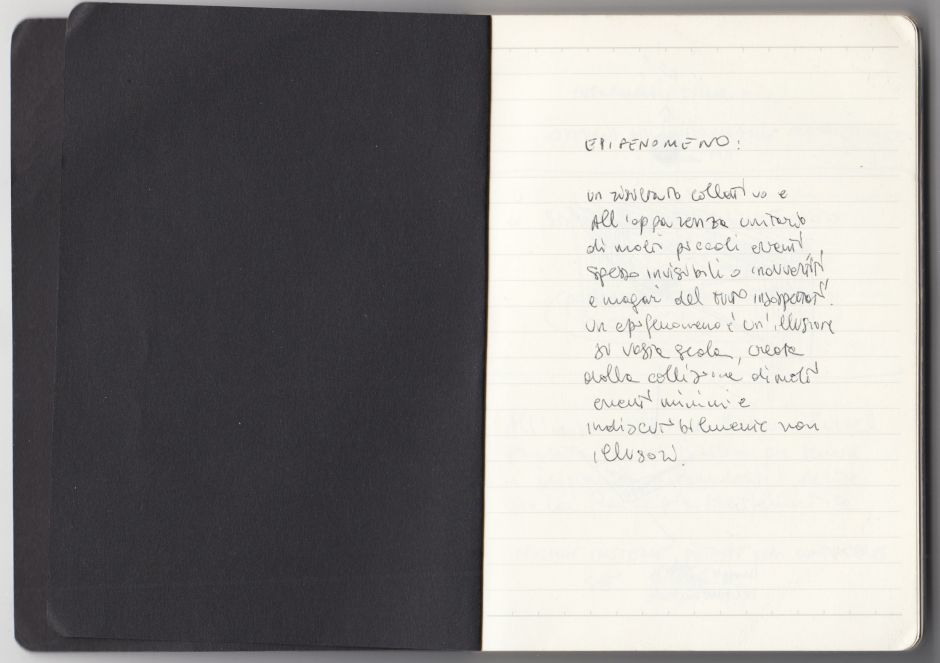 EPIFENOMENO:
un risultato collettivo e
All'apparenza unitario
di molti piccoli eventi
spesso invisibili o inavvertiti
e magari del tutto insospettati.
un epifenomeno è un'illusione
su vasta scala, creata
dalla collisione di molti
eventi minimi e
indiscutibilmente non
illusori.